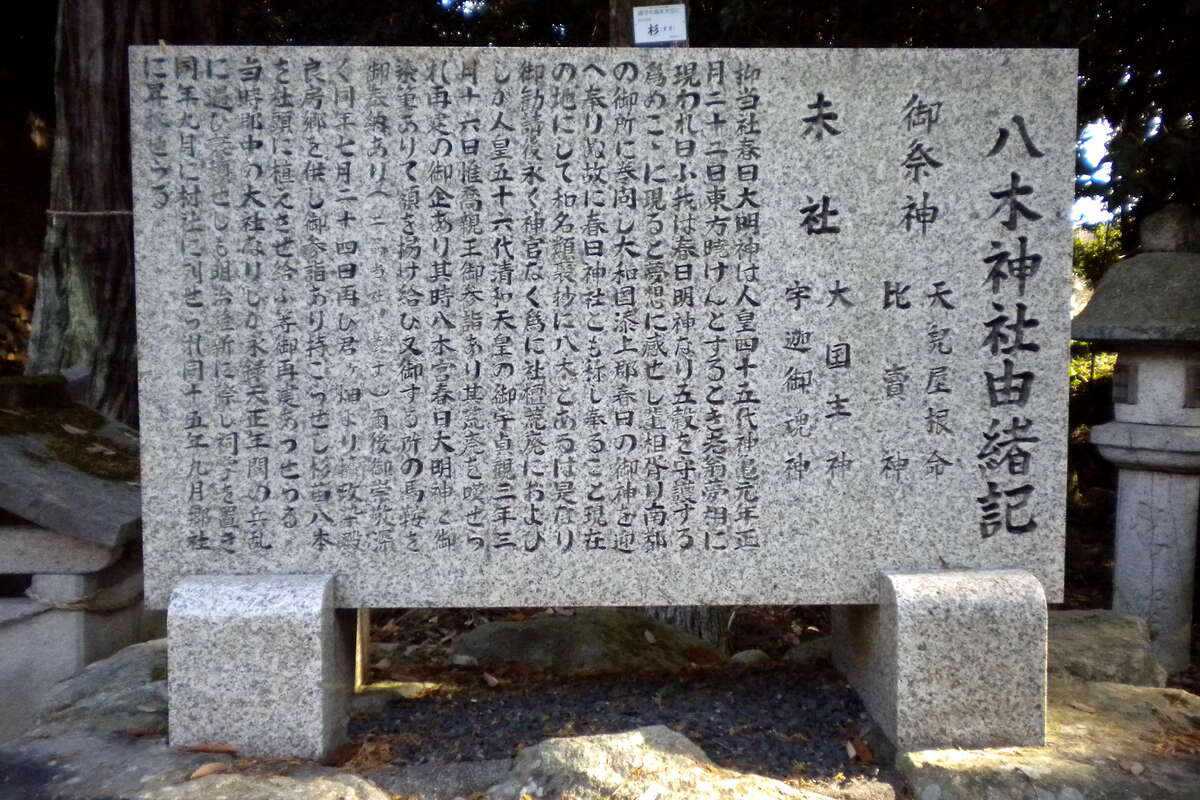 八木神社由緒記
御祭神
天兒屋根命
比賣神
末社
大国主神
宇迦御魂神
抑当社春日大明神は人皇四十五代神亀元年正
月二十二日東方暁けんとするとき老翁夢相に
現われ曰ふ我は春日明神なり五穀を守護する
為めこゝに現ると夢想に感せし輩相督り南都
の御所に奏問し大和国添上郡春日の御神を迎
へ奉りぬ故に春日神社とも称し奉ること現在
の地にして和名類聚抄に八木とあるは是なり
御勧請後永く神官なく為に社檀荒廃におよび
しが人皇五十六代清和天皇の御宇貞観三年三
月十六日惟喬親王御参詣あり其荒廃を嘆せら
れ再定の御企あり其時八木宮春日大明神と御
染筆ありて額を揚け給ひ又御する所の馬鞍を
御奉納あり
雨後御崇敬深
く同年七月二十四日再ひ君ヶ畑より摂政
良房郷を供し御参詣あり持こらせし杉苗八本
を社頭に植えさせ給ふ等御再度あつせらる
当時郡中の大社なりしが永禄天正年間の兵乱
に遇ひ
せしも明治維新に際し祠掌を置き
同年九月に村社に列せられ同十五年九月郷社
に昇